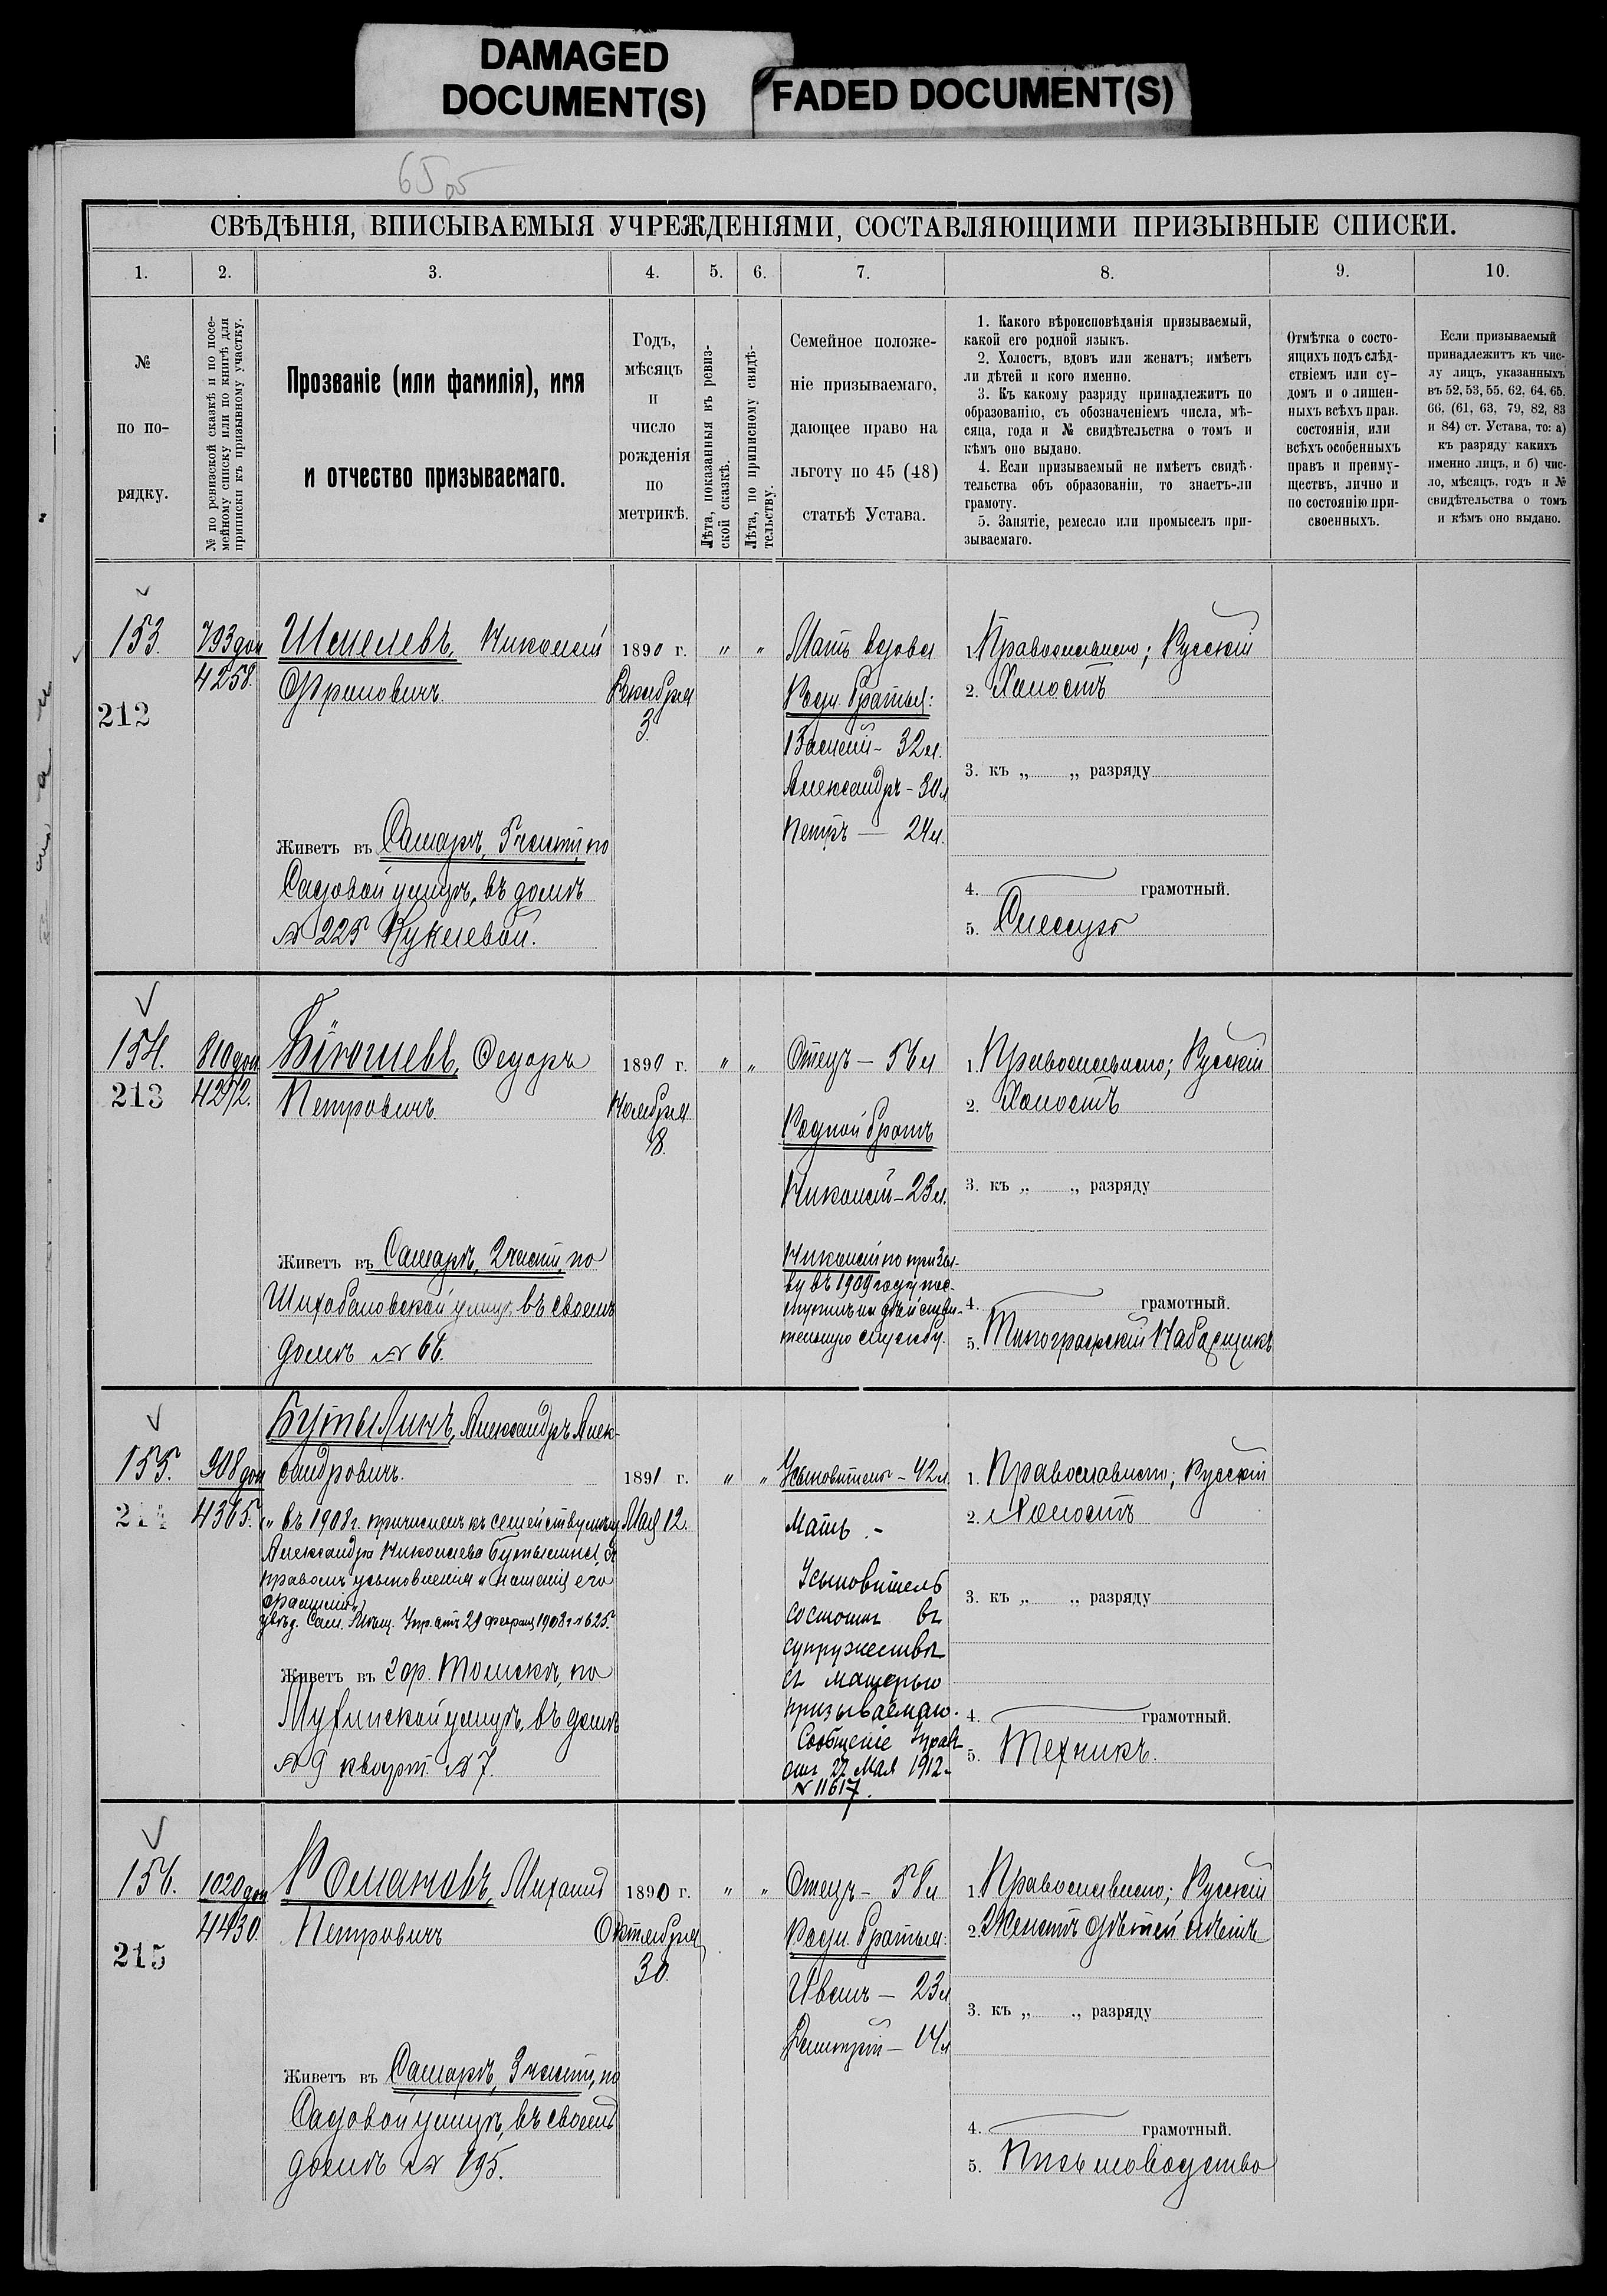 DAMAGED
DOCUMENT(S)
FADED DOCUMENT(S)
СВѢДѢНІЯ, ВПИСЫВАЕМЫЯ УЧРЕЖДЕНІЯМИ, СОСТАВЛЯЮЩИМИ ПРИЗЫВНЫЕ СПИСКИ.
1. 2. 3. 4. 5. 6. 7. 8. 9. 10.
№
по по-
рядку.
№ по ревизской сказкѣ и по посе-
мейному списку или по книгѣ для
приписки къ призывному участку.
Прозваніе (или фамилія), имя
и отчество призываемаго.
Годъ,
мѣсяцъ
и
число
рожденія
по
метрикѣ.
Лѣта, показанныя въ ревиз-
ской сказкѣ.
Лѣта, по приписному свидѣ-
тельству.
Семейное положе-
ніе призываемаго,
дающее право на
льготу по 45 (48)
статьѣ Устава.
1. Какого вѣроисповѣданія призываемый,
какой его родной языкъ.
2. Холостъ, вдовъ или женатъ; имѣетъ
ли дѣтей и кого именно.
3. Къ какому разряду принадлежитъ по
образованію, съ обозначеніемъ числа, мѣ-
сяца, года и № свидѣтельства о томъ и
кѣмъ оно выдано.
4. Если призываемый не имѣетъ свидѣ-
тельства объ образованіи, то знаетъ-ли
грамоту.
5. Занятіе, ремесло или промыселъ при-
зываемаго.
Отмѣтка о состо-
ящихъ подъ слѣд-
ствіемъ или су-
домъ и о лишен-
ныхъ всѣхъ прав.
состоянія, или
всѣхъ особенныхъ
правъ и преиму-
ществъ, лично и
по состоянію при-
своенныхъ.
Если призываемый
принадлежитъ къ чис-
лу лицъ, указанныхъ
въ 52, 53, 55, 62, 64, 65,
66, (61, 63, 79, 82, 83
и 84) ст. Устава, то: а)
къ разряду какихъ
именно лицъ, и б) чис-
ло, мѣсяцъ, годъ и №
свидѣтельства о томъ
и кѣмъ оно выдано.
153.
212
793 доп
4258.
Шепелевъ, Николай
Живетъ въ Самарѣ, 5 части, по
Садовой улицѣ, въ домѣ
№ 225
1890 г.
Декабря
3.
" "
Мать вдова
Родн. братья:
Василій - 32 л.
Александръ - 30 л
Петръ — 24 л.
1. Православнаго; Русскій
2. Холостъ
3. къ „ „ разряду
4. грамотный.
5. Слесарь
154.
213
810 доп
4272.
Федоръ
Петровичъ.
Живетъ въ Самарѣ, 2 части, по
Шихобаловской улицѣ, въ своемъ
домѣ № 66.
1890 г.
Ноября
18.
" "
Отецъ — 56 л
Родной братъ
Николай — 23 л.
Николай по призы-
ву въ 1909 году пос-
тупилъ на дѣйстви-
тельную службу.
1. Православнаго; Русскій
2. Холостъ
3. къ „ „ разряду
4. грамотный.
5. Типографскій Наборщикъ
155.
214
908 доп
4365.
Бутылинъ, Александръ Алек-
сандровичъ.
въ 1908 г. причисленъ къ семейству
Александра Николаева Бутылина, съ
правомъ усыновленія и ношенія его
фамиліи
Сам. Мѣщ. Упр. отъ 29 февраля 1908 г. № 625.
Живетъ въ гор. Томскѣ, по
Мухинской улицѣ, въ домѣ
№ 9 кварт. № 7.
1891 г.
Мая 12.
" "
Усыновитель - 42 л.
Мать -
Усыновитель
состоитъ въ
супружествѣ
съ матерью
призываемаго.
Сообщеніе Управ
отъ 22 Мая 1912 г.
№ 11617.
1. Православнаго; Русскій
2. Холостъ
3. къ „ „ разряду
4. грамотный.
5. Техникъ.
156.
215
1020 доп
4430.
Романовъ, Михаилъ
Петровичъ
Живетъ въ Самарѣ, 3 части, по
Садовой улицѣ, въ своемъ
домѣ № 195.
1890 г.
Октября
30.
" "
Отецъ — 58 л
Родн. братья:
Иванъ — 23 л
Дмитрій — 14 л
1. Православнаго; Русскій
2. Женатъ дѣтей
3. къ „ „ разряду
4. грамотный.
5. Письмоводство